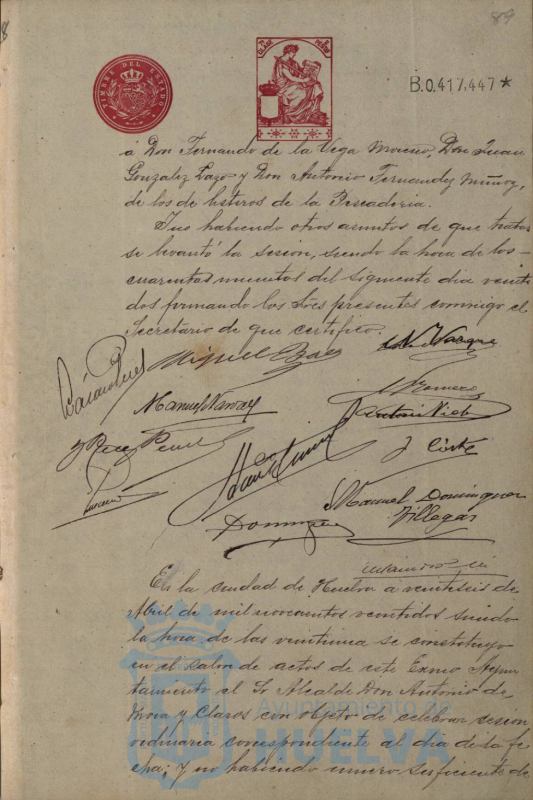 89
TIMBRE DEL ESTADO
B.0.417,447*
á Don Fernando de la Vega Moreno, Don Juan
Gonzalez Lazo y Don Antonio Fernandez Muñoz,
de los de listeros de la Pescaderia.
Y no habiendo otros asuntos de que tratar
se levantó la sesion, siendo la hora de los
cuarenta minutos del siguiente dia veinti
dos firmando los Sres presentes conmigo el
Secretario de que certifico.
Miguel Baez
Vazquez
Manuel Narvaez
Romero
Antonio Vieb
J. Corte
Manuel Dominguez
Villegas
Dominguez
En la ciudad de Huelva a veintiseis de
Abril de mil novecientos veintidos siendo
la hora de las veintiuna se constituyo
en el salon de actos de este Exmo Ayun
tamiento el Sr Alcalde Don Antonio de
Mora y Claros con objeto de celebrar sesion
ordinaria correspondiente al dia de la fe
cha; y no habiendo numero suficiente de
Ayuntamiento de
HUELVA